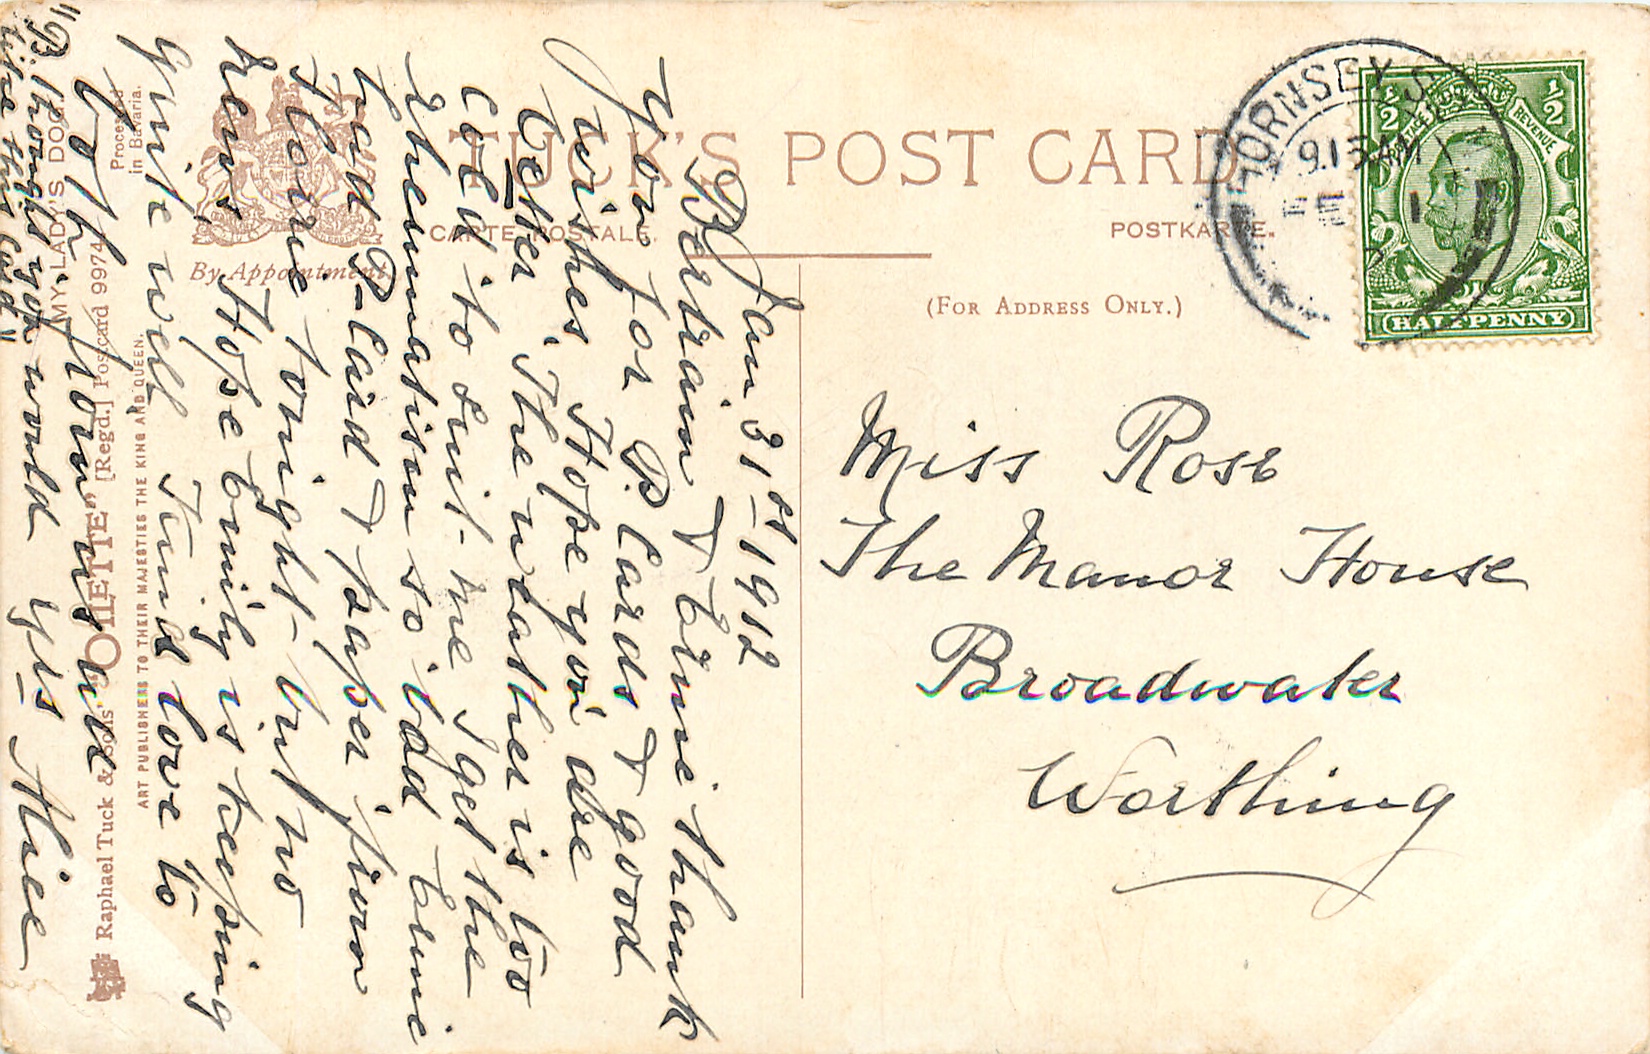 TUCK'S POST CARD
CARTE POSTALE.
POSTKARTE.
(For Address Only.)
By Appointment.
HORNSEY
9.15 AM
1/2
1/2
POSTAGE
REVENUE
HALFPENNY
Miss Rose
The Manor House
Broadwater
Worthing
Jan 31st 1912
Bertram & Ernie thank
you for P. Cards & good
wishes Hope you are
better The weather is too
cold to suit me I get the
rheumatism so bad Ernie
had P-Card & paper from
Florie tonight but no
news, Hope Emily is keeping
quite well Fond love to
both from us
yrs Alice
"B. thought you would
like this card"
Raphael Tuck & Sons' "OILETTE" [Regd.] Postcard 9974.
MY LADY'S DOG.
ART PUBLISHERS TO THEIR MAJESTIES THE KING AND QUEEN.
Processed
in Bavaria.